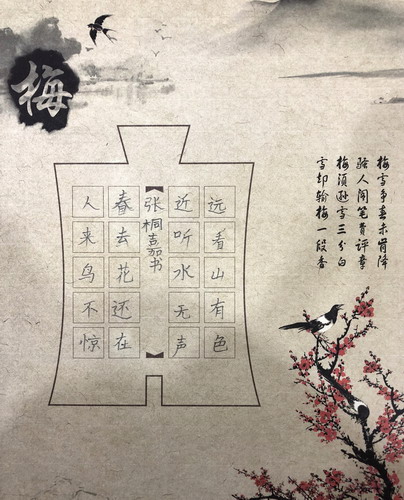 梅雪争春未肯降
骚人阁笔费评章
梅须逊雪三分白
雪却输梅一段香
远看山有色
近听水无声
张桐嘉书
春去花还在
人来鸟不惊
梅